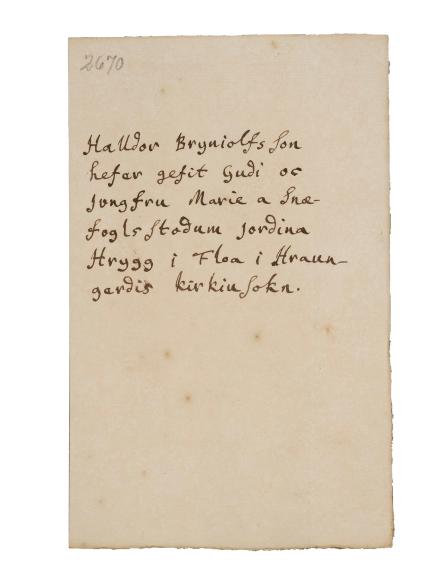 2670
Halldor Bryniolfs son
hefur gefit Gudi oc
Jungfru Marie a Snæ-
foglsstodum jordina
Hrygg i Floa i Hraun-
gerdis kirkiu sokn.